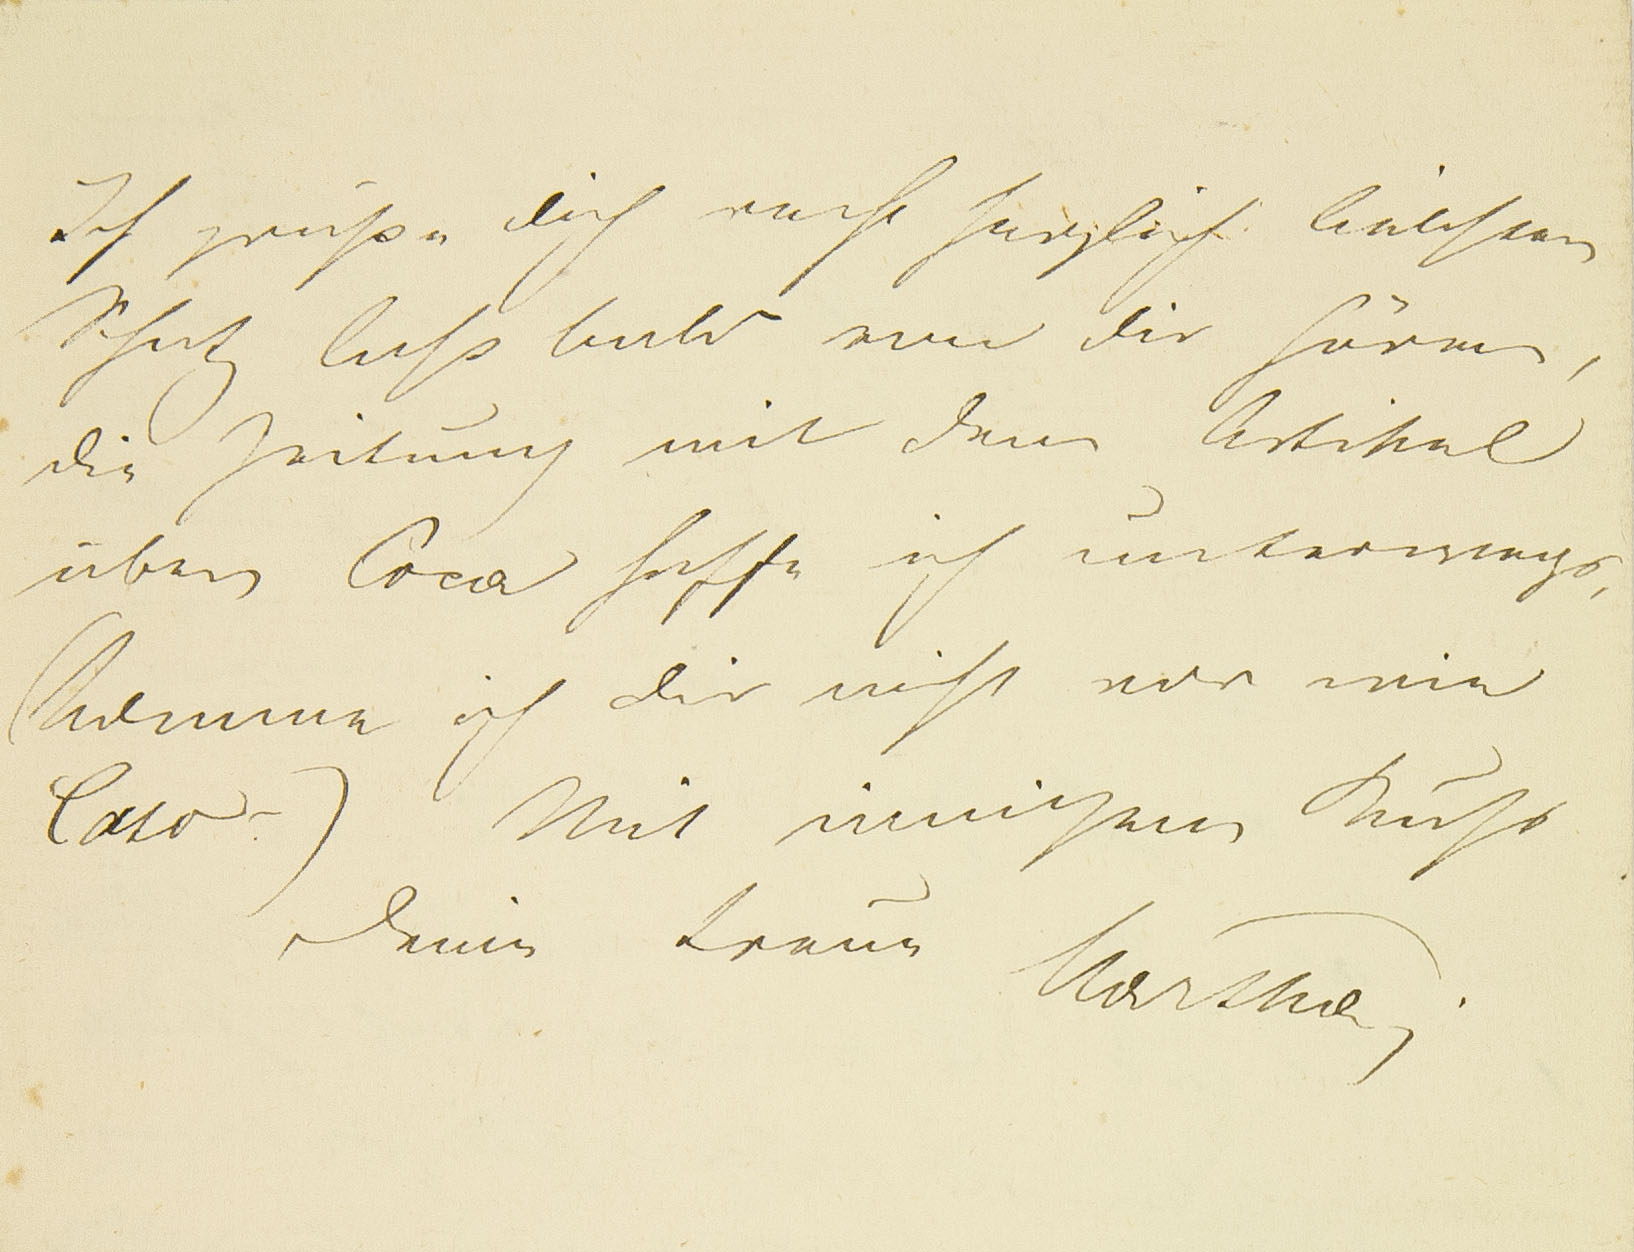 Ich grüße dich recht herzlich liebster
Schatz laß bald von dir hören,
die Zeitung mit dem Artikel
über Coca hoffe ich unterwegs,
(komme ich dir nicht vor wie
Cato?) Mit innigem Kuß
deine treue Martha